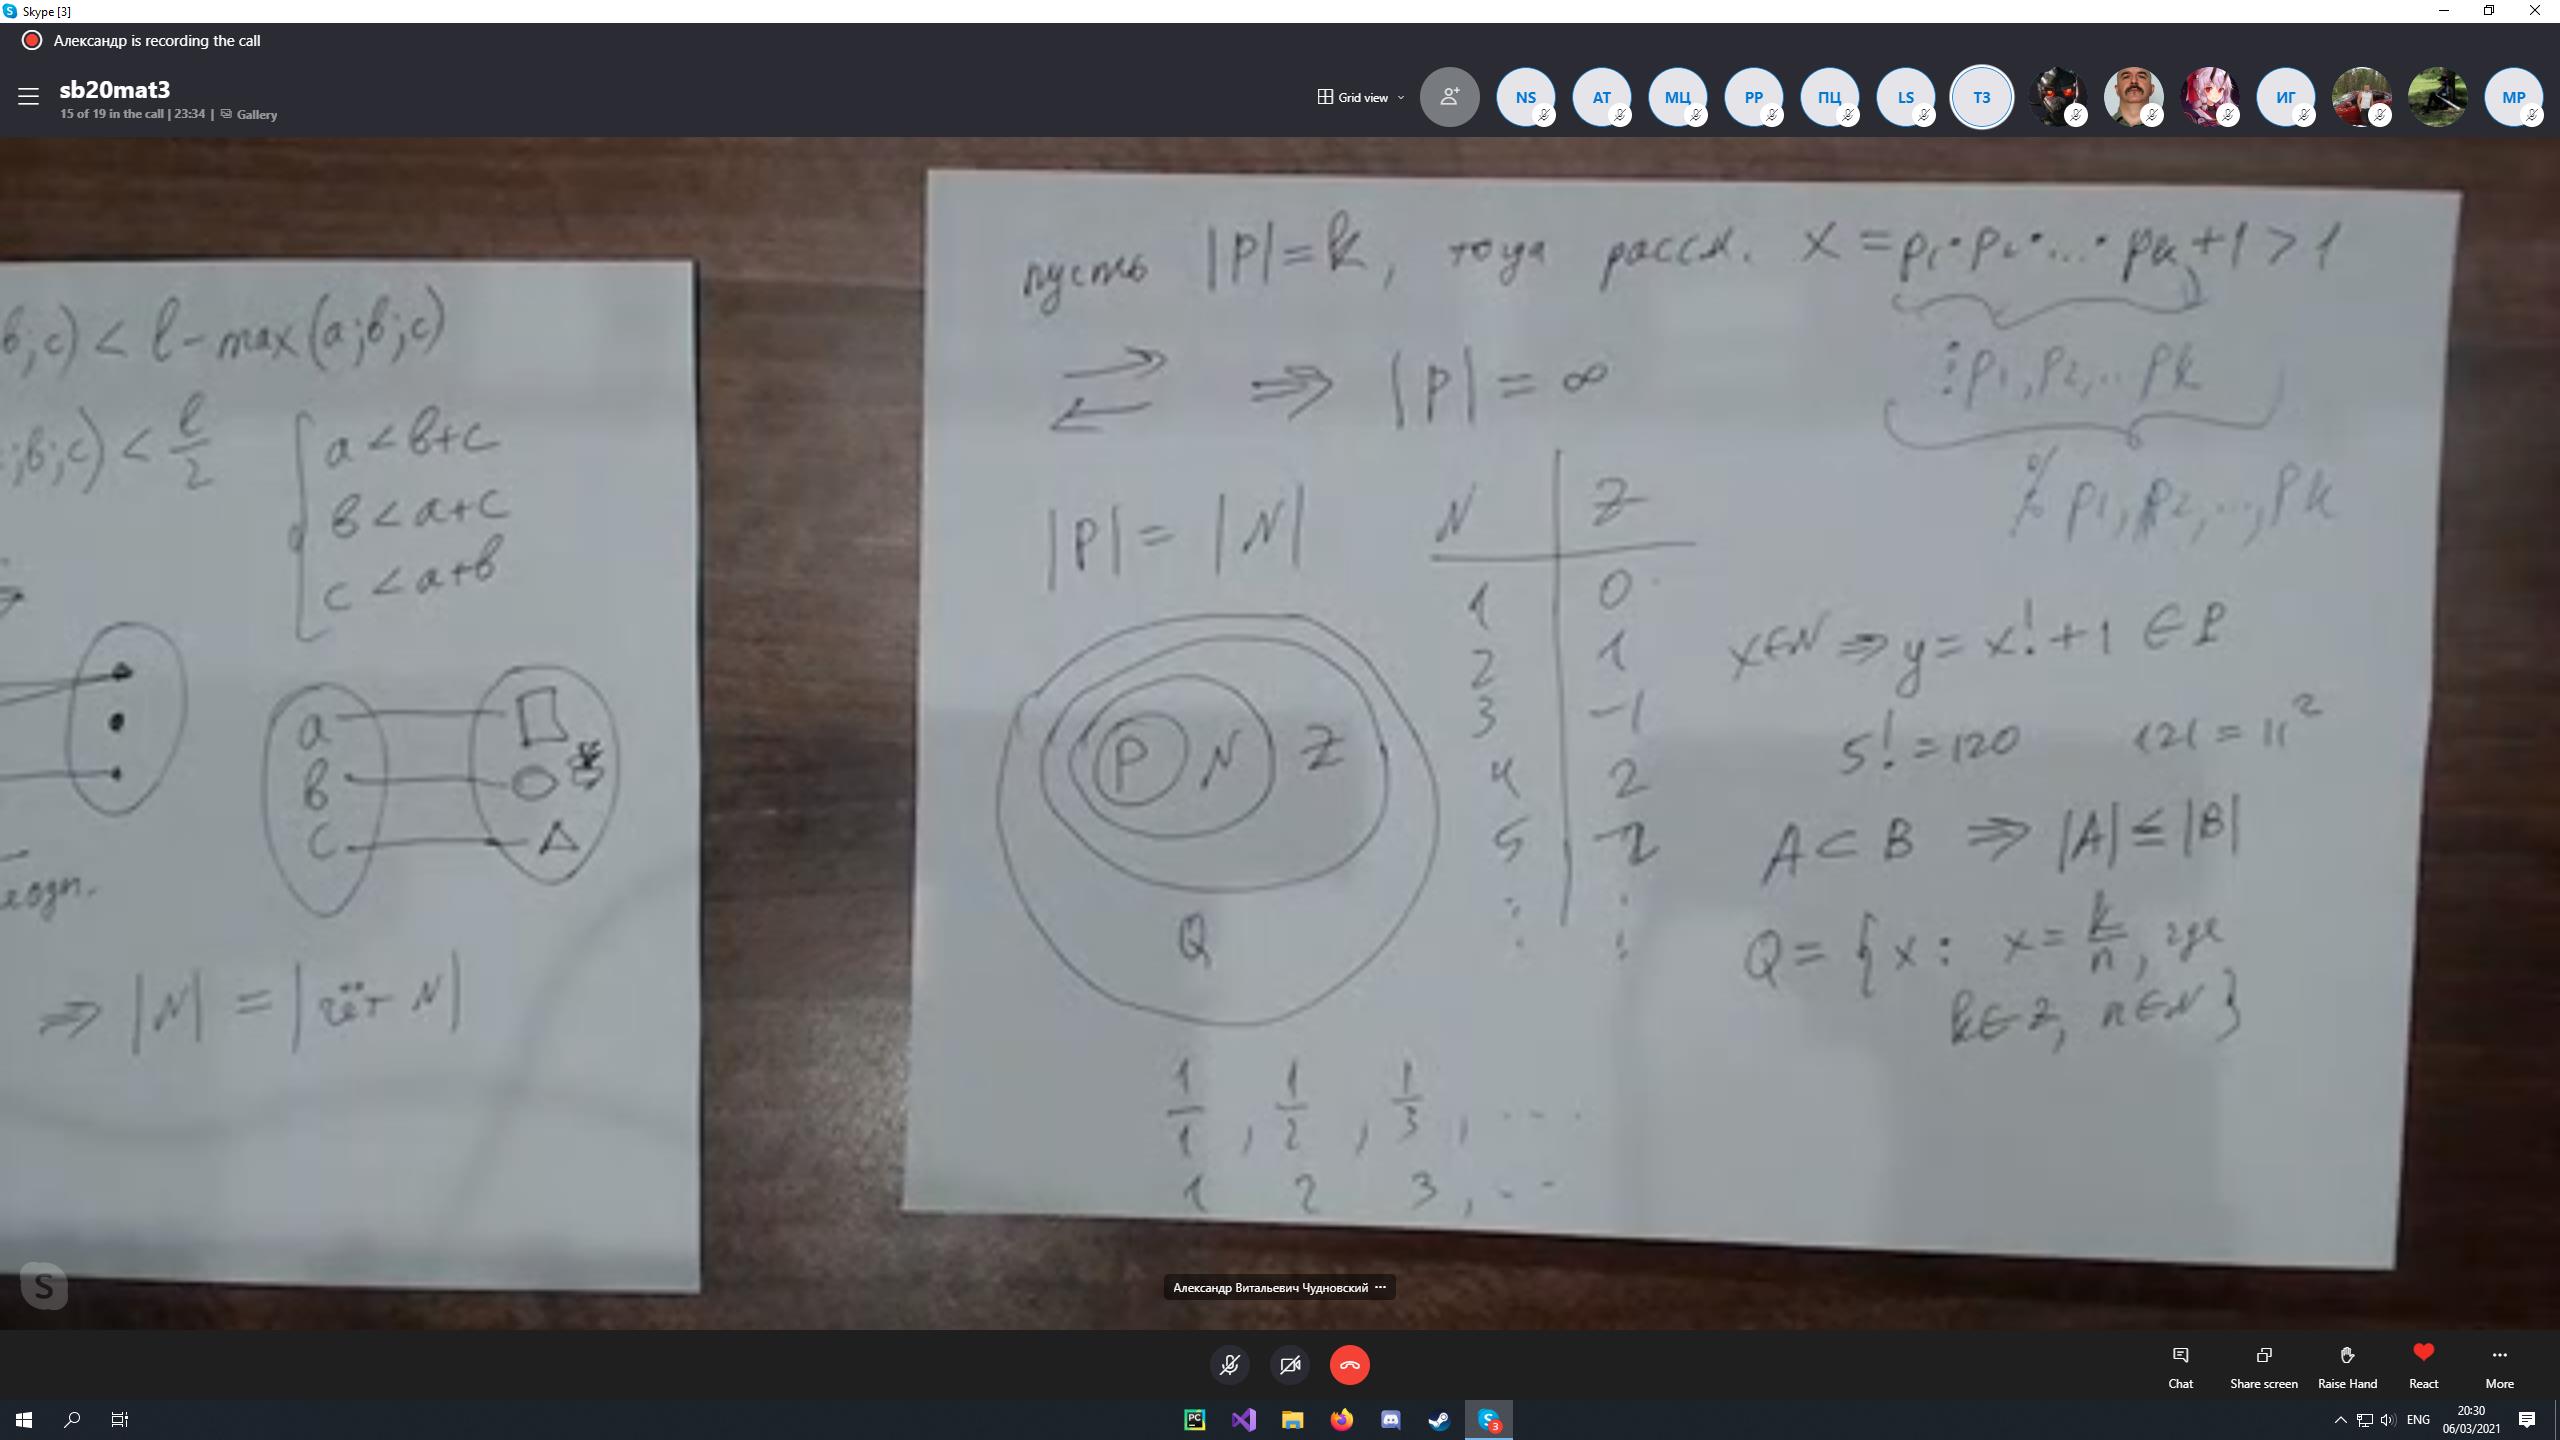 Skype [3]
Александр is recording the call
sb20mat3
15 of 19 in the call | 23:34 | Gallery
Grid view
NS AT МЦ PP ПЦ LS ТЗ ИГ MP
b;c) < l - max(a;b;c)
;b;c) < l/2
a < b+c
b < a+c
c < a+b
a
b
c
⇒ |N| = |чёт N|
пусть |P| = k, тогда рассм. x = p₁·p₂·...·pₖ+1 > 1
⋮ p₁, p₂, .. pₖ
⇒ |P| = ∞
p₁, p₂, ..., pₖ
|P| = |N|
N Z
1 0
2 1
3 -1
4 2
5 -2
P N Z
Q
x∈N ⇒ y = x! + 1 ∈ P
5! = 120 121 = 11²
A ⊂ B ⇒ |A| ≤ |B|
Q = {x : x = k/n, где
k∈Z, n∈N}
1/1, 1/2, 1/3, ....
1 2 3, ...
Александр Витальевич Чудновский
Chat
Share screen
Raise Hand
React
More
PC
3
ENG
20:30
06/03/2021